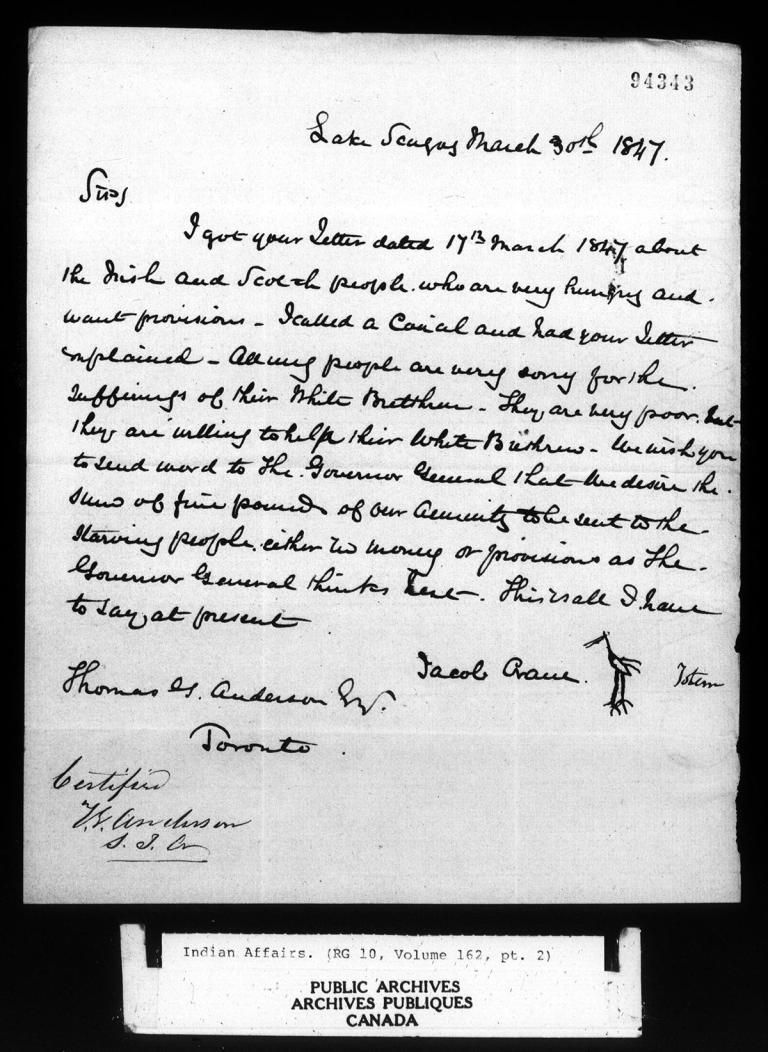 94343
Lake Scugog March 30th 1847.
Sir
I got your Letter dated 17th March 1847 about
the Irish and Scotch people who are very hungry and
want provisions - I called a Council and had your Letter
explained - All my people are very sorry for the
sufferings of their White Bretthren - They are very poor, but
they are willing to help their White Brethren - We wish you
to send word to the Governor General that We desire the
sum of five pounds of our Annuity to be sent to the
starving people either in money or provisions as the
Governor General thinks best - This is all I have
to say at present
Jacob Crane Totem
Thomas G. Anderson Esq.
Toronto
Certified
T.G. Anderson
S. I. A
Indian Affairs. (RG 10, Volume 162, pt. 2)
PUBLIC ARCHIVES
ARCHIVES PUBLIQUES
CANADA